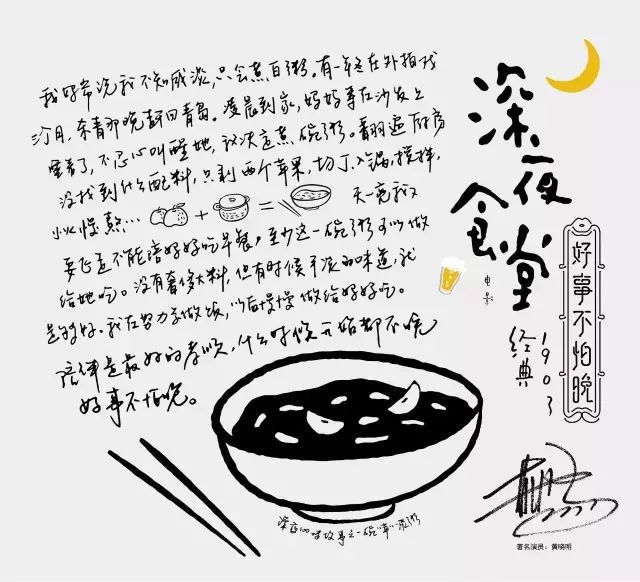 我妈常说我不知咸淡,只会煮白粥。有一年在外拍戏
3个月,杀青那晚赶回青岛。凌晨到家,妈妈等在沙发上
睡着了,不忍心叫醒她,就决定煮一碗粥。翻遍厨房
没找到什么配料,只剩两个苹果,切丁、入锅,搅拌,
小火慢熬… 天一亮我又
要飞走不能陪妈妈吃早餐,至少这一碗粥可以做
给她吃。没有奢侈大料,但有时候平淡的味道,就
是够好。我在努力学做饭,以后慢慢做给妈妈吃。
陪伴是最好的孝顺,什么时候开始都不晚
好事不怕晚。
深夜食堂
电影
经典1903
好事不怕晚
深夜100味故事之一碗“苹”淡粥
著名演员:黄晓明